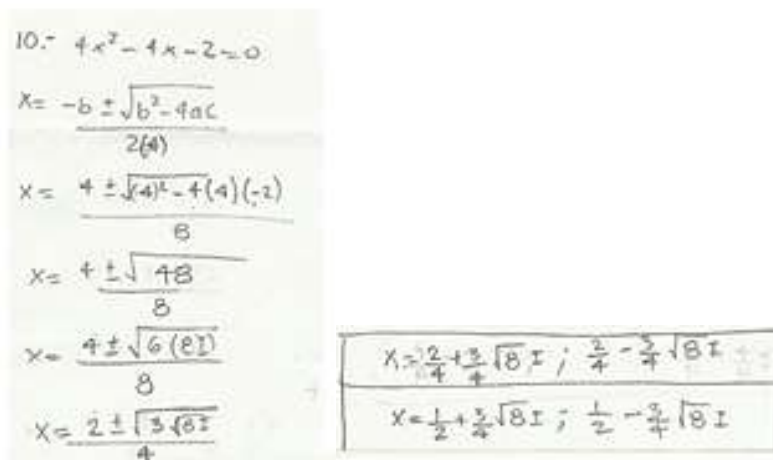 10.- 4x² - 4x - 2 = 0
x = -b ± √b² - 4ac / 2(4)
x = 4 ± √(4)² - 4(4)(-2) / 8
x = 4 ± √48 / 8
x = 4 ± √6(8I) / 8
x = 2 ± √3√8I / 4
x = 2/4 + 3/4 √8 I ; 2/4 - 3/4 √8 I
x = 1/2 + 3/4 √8 I ; 1/2 - 3/4 √8 I